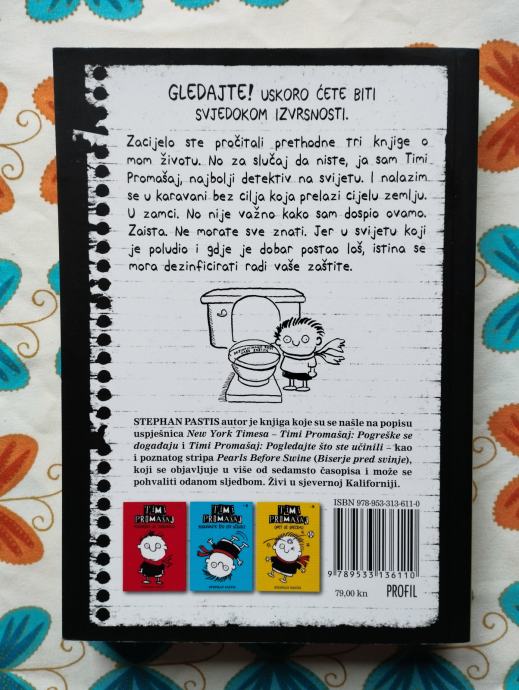 GLEDAJTE! USKORO ĆETE BITI
SVJEDOKOM IZVRSNOSTI.
Zacijelo ste pročitali prethodne tri knjige o
mom životu. No za slučaj da niste, ja sam Timi
Promašaj, najbolji detektiv na svijetu. I nalazim
se u karavani bez cilja koja prelazi cijelu zemlju.
U zamci. No nije važno kako sam dospio ovamo.
Zaista. Ne morate sve znati. Jer u svijetu koji
je poludio i gdje je dobar postao loš, istina se
mora dezinficirati radi vaše zaštite.
STEPHAN PASTIS autor je knjiga koje su se našle na popisu
uspješnica New York Timesa – Timi Promašaj: Pogreške se
događaju i Timi Promašaj: Pogledajte što ste učinili – kao
i poznatog stripa Pearls Before Swine (Biserje pred svinje),
koji se objavljuje u više od sedamsto časopisa i može se
pohvaliti odanom sljedbom. Živi u sjevernoj Kaliforniji.
ISBN 978-953-313-611-0
TIMI
PROMAŠAJ
TIMI
PROMAŠAJ
POGLEDAJTE ŠTO STE UČINILI
STEPHAN PASTIS
TIMI
PROMAŠAJ
STEPHAN PASTIS
9 789533 136110
79,00 kn
PROFIL